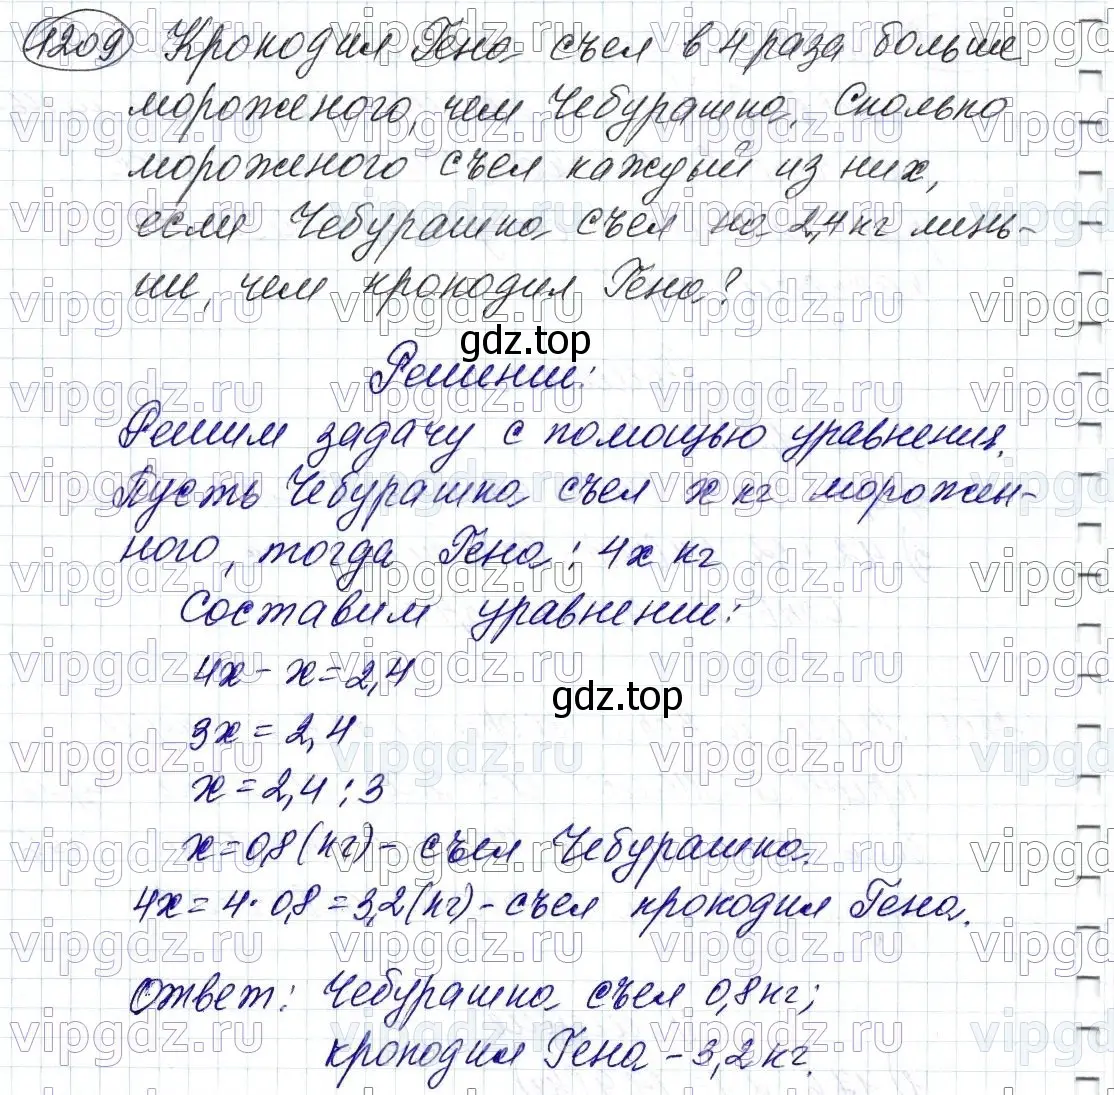 1209 Крокодил Гена съел в 4 раза больше
мороженого, чем Чебурашка. Сколько
мороженого съел каждый из них,
если Чебурашка съел на 2,4 кг мень-
ше, чем крокодил Гена?
gdz.top
Решение:
Решим задачу с помощью уравнения.
Пусть Чебурашка съел x кг морожен-
ного, тогда Гена: 4x кг
Составим уравнение:
4x - x = 2,4
gdz.top
3x = 2,4
x = 2,4 : 3
x = 0,8 (кг) - съел Чебурашка.
4x = 4 · 0,8 = 3,2 (кг) - съел крокодил Гена.
Ответ: Чебурашка съел 0,8 кг;
крокодил Гена - 3,2 кг.
vipgdz.ru